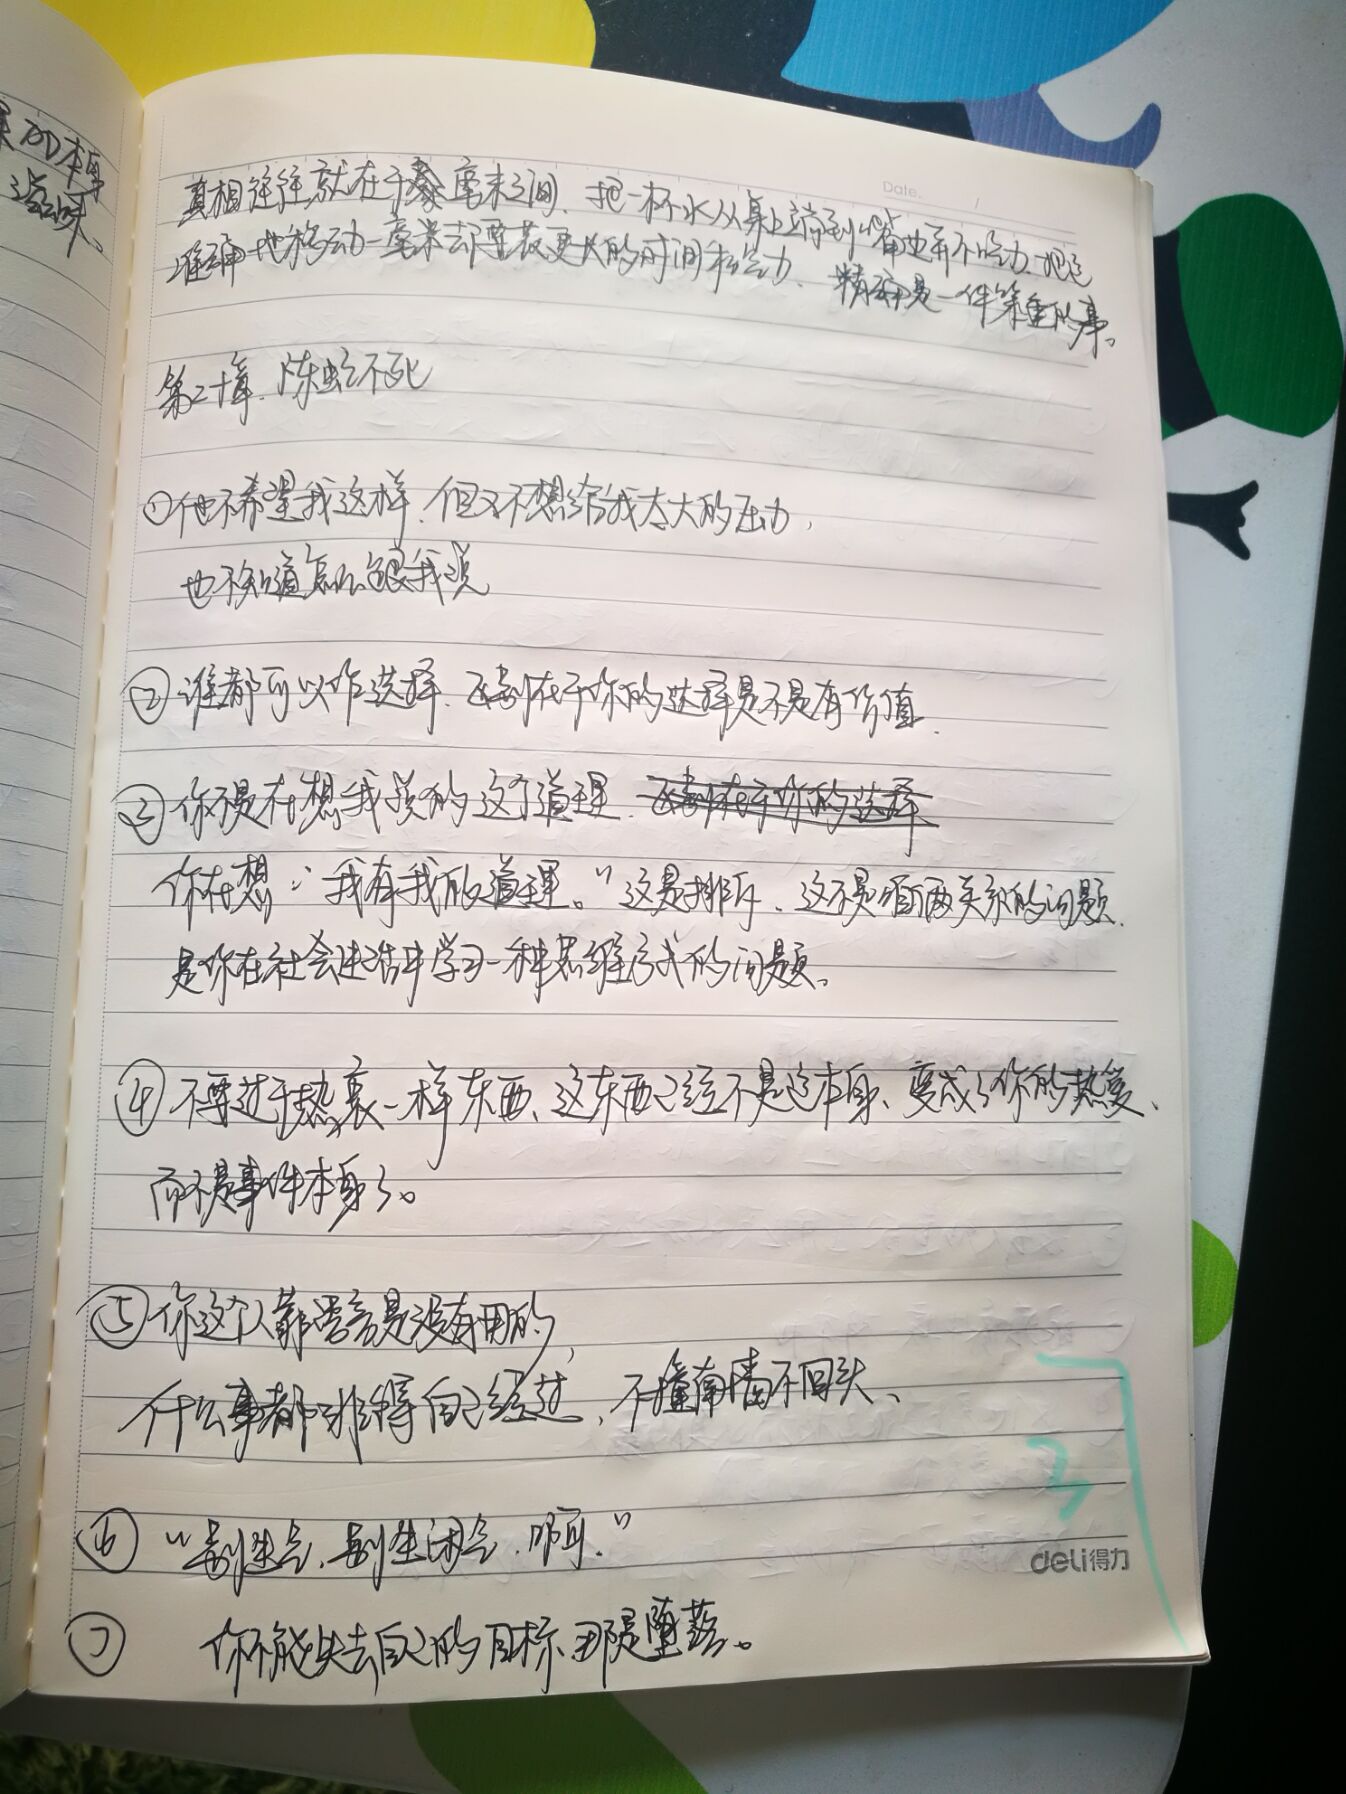 果的本身
滋味。
Date.
真相往往就在于毫末之间、把一杯水从桌上端到嘴边并不吃力、把它
准确地移动一毫米却要花更大的时间和给力、精确是一件笨重的事。
第二十章、炼蛇不死
①他不希望我这样、但又不想给我太大的压力,
也不知道怎么跟我说
②谁都可以作选择、区别在于你的选择是不是有价值.
③你不是在想我说的这个道理、区别在于你的选择
你在想:"我有我的道理。"这是排斥、这不是咱俩关系的问题、
是你在社会生活中学习一种思维方式的问题。
④不要过于热衷一样东西、这东西已经不是这本身、变成了你的热爱、
而不是事件本身了。
⑤你这个人靠语言是没有用的,
什么事都非得自己经过、不撞南墙不回头、
⑥"别生气、别生闲气、啊."
⑦ 你不能失去自己的目标、那是堕落。
deli得力